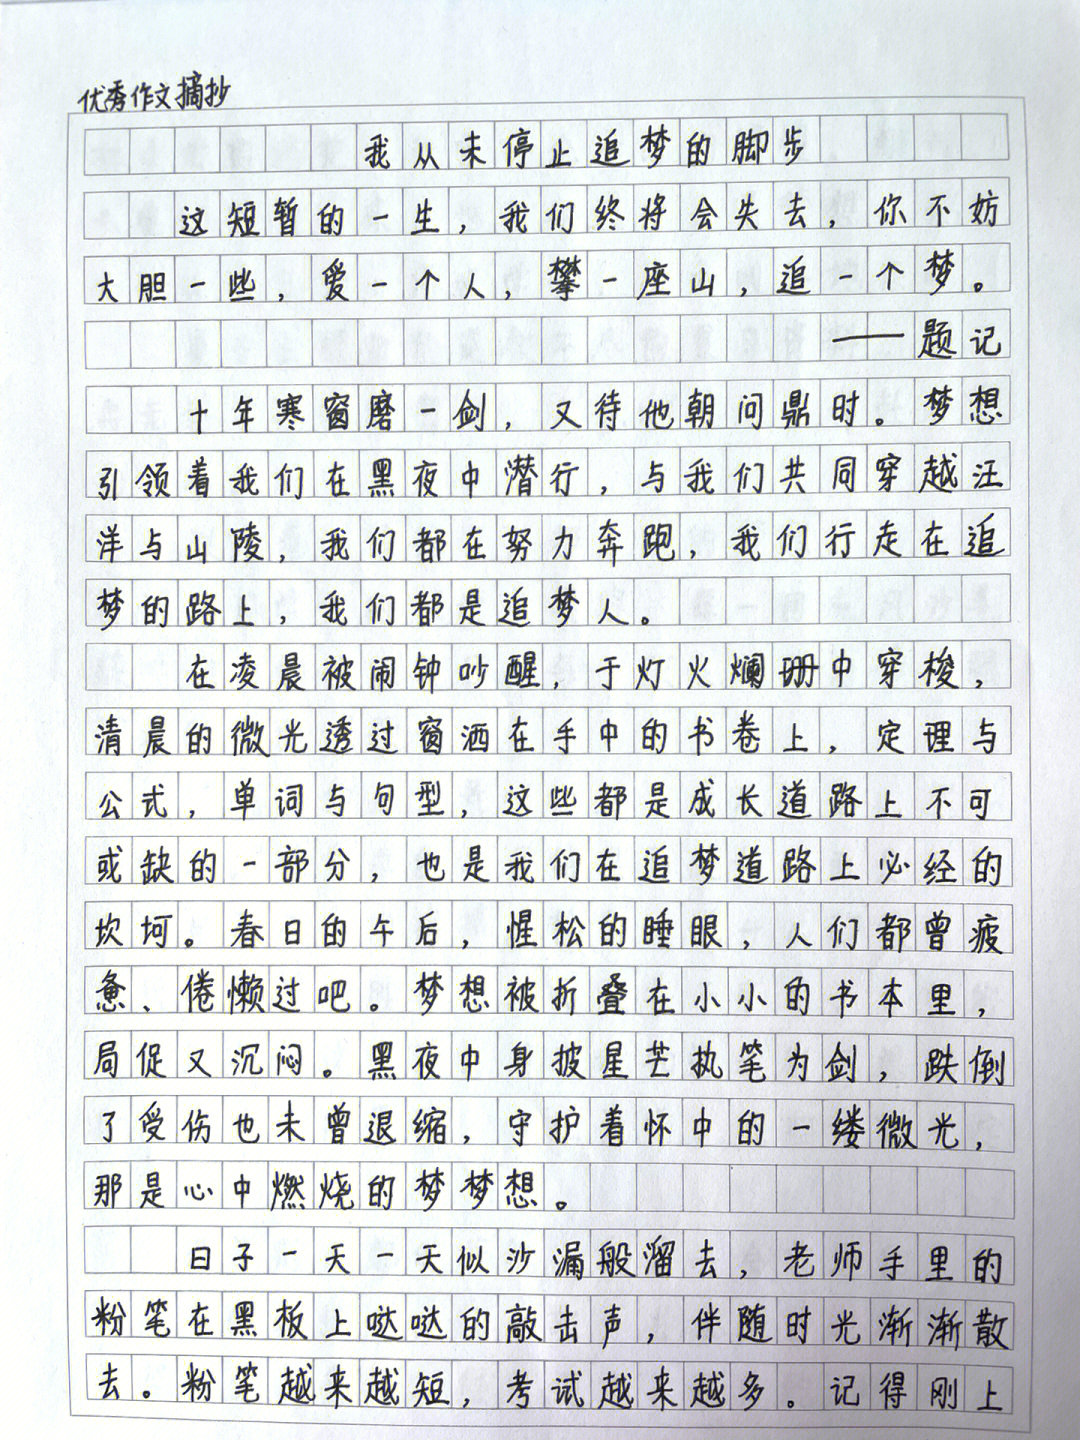 优秀作文摘抄
我从未停止追梦的脚步
这短暂的一生，我们终将会失去，你不妨
大胆一些，爱一个人，攀一座山，追一个梦。
——题记
十年寒窗磨一剑，又待他朝问鼎时。梦想
引领着我们在黑夜中潜行，与我们共同穿越汪
洋与山陵，我们都在努力奔跑，我们行走在追
梦的路上，我们都是追梦人。
在凌晨被闹钟吵醒，于灯火斓珊中穿梭，
清晨的微光透过窗洒在手中的书卷上，定理与
公式，单词与句型，这些都是成长道路上不可
或缺的一部分，也是我们在追梦道路上必经的
坎坷。春日的午后，惺松的睡眼，人们都曾疲
惫、倦懒过吧。梦想被折叠在小小的书本里，
局促又沉闷。黑夜中身披星芒执笔为剑，跌倒
了受伤也未曾退缩，守护着怀中的一缕微光，
那是心中燃烧的梦梦想。
日子一天一天似沙漏般溜去，老师手里的
粉笔在黑板上哒哒的敲击声，伴随时光渐渐散
去。粉笔越来越短，考试越来越多。记得刚上